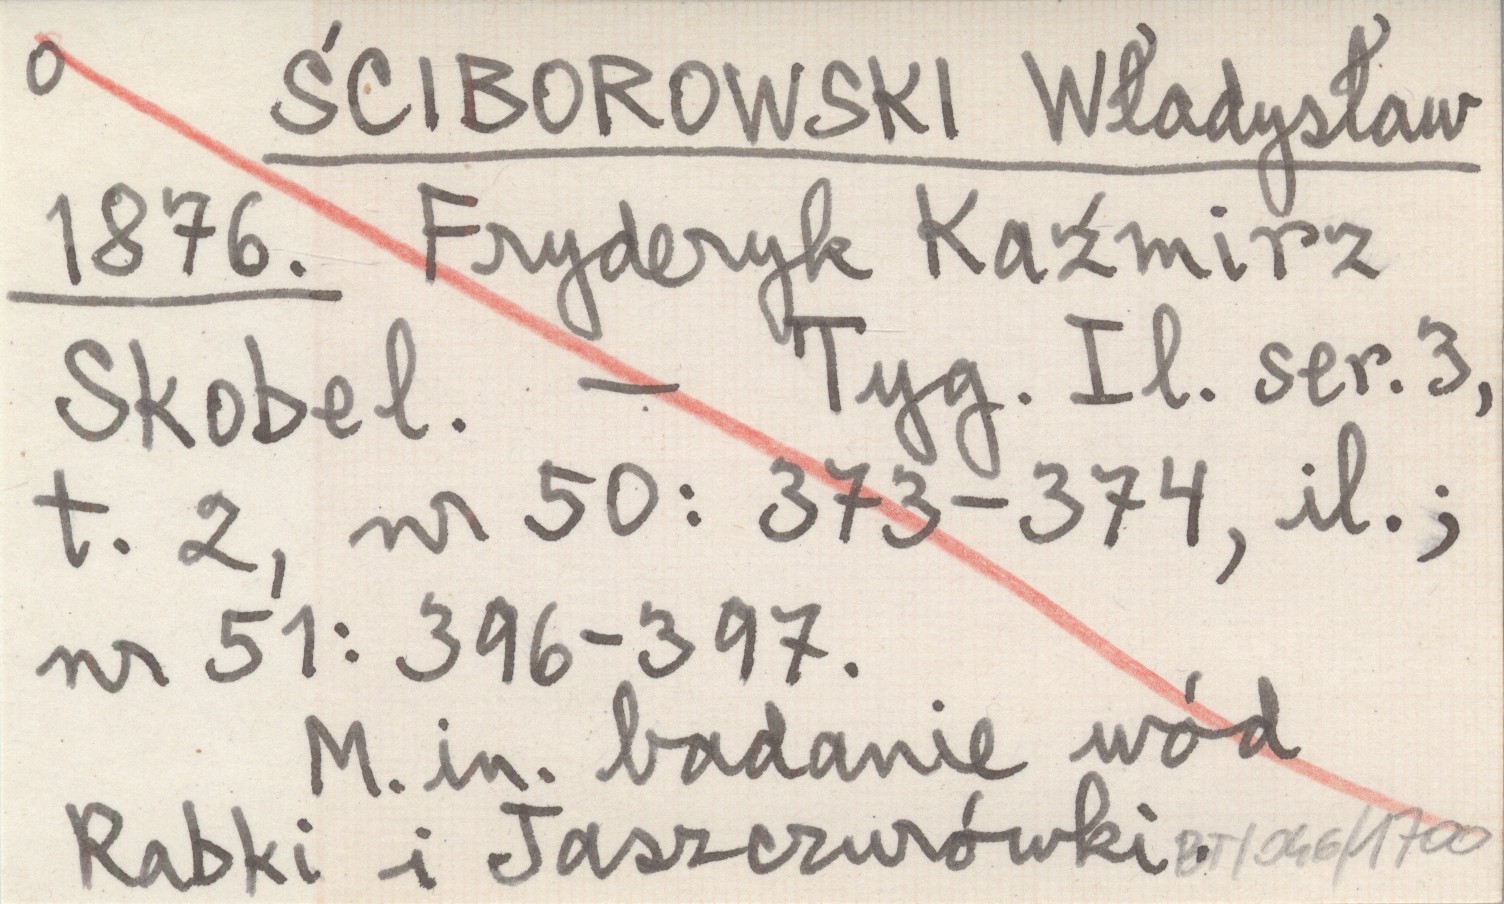 o ŚCIBOROWSKI Władysław
1876. Fryderyk Kaźmirz
Skobel. — Tyg. Il. ser. 3,
t. 2, nr 50: 373-374, il.;
nr 51: 396-397.
M. in. badanie wód
Rabki i Jaszczurówki.
BT/046/1700